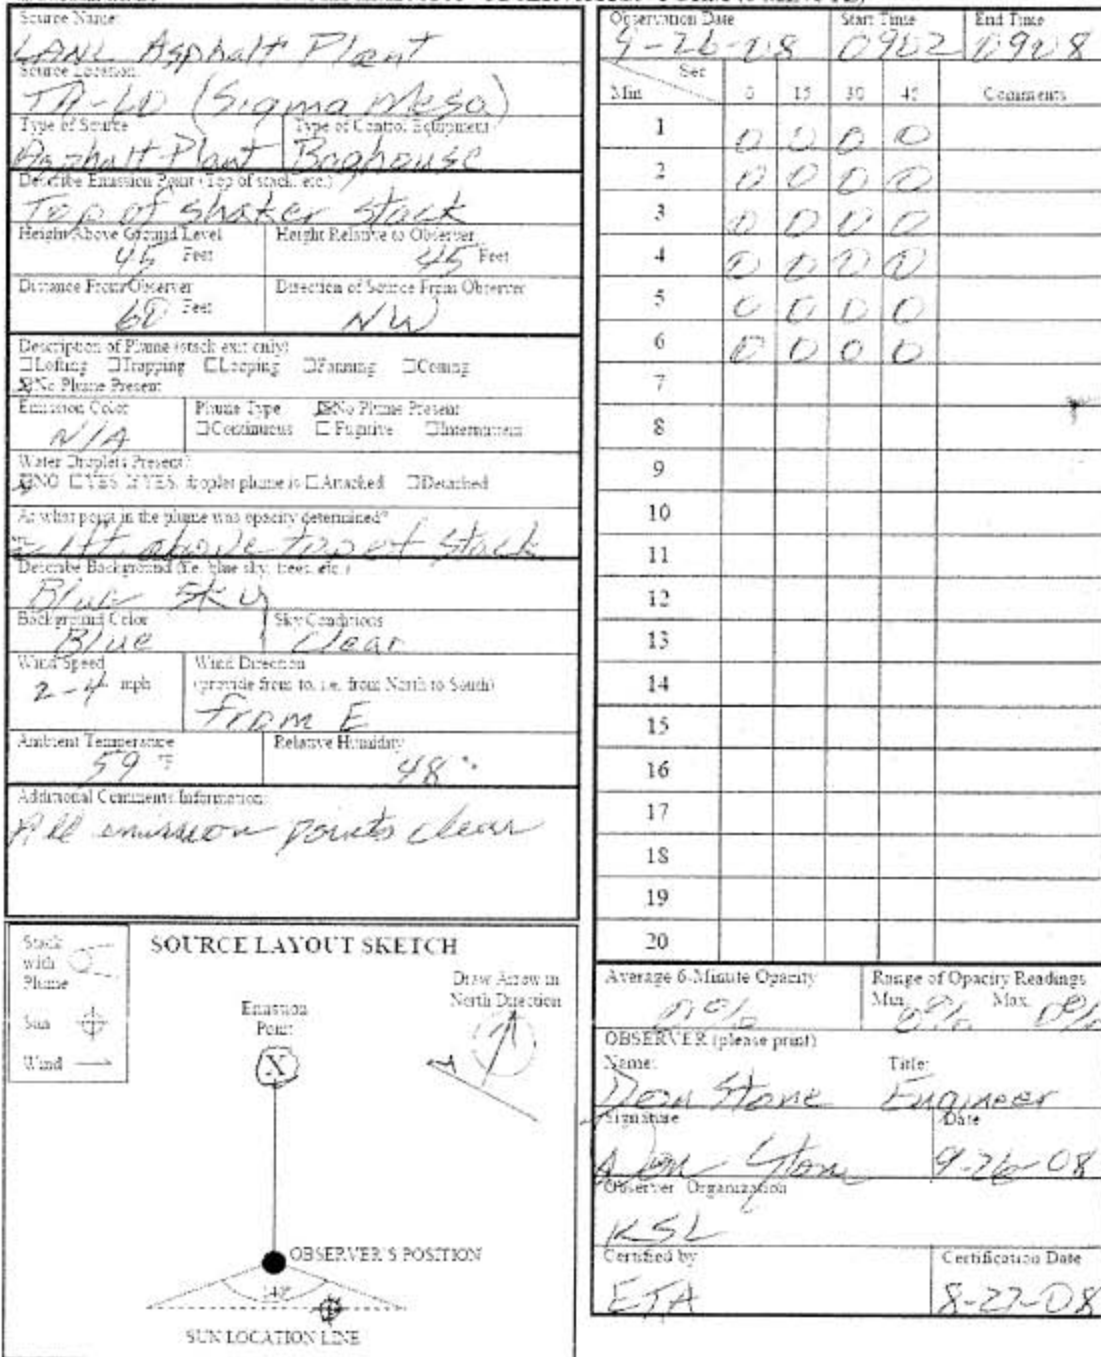 Source Name:
LANL Asphalt Plant
Source Location:
TA-60 (Sigma Mesa)
Type of Source
Asphalt Plant
Type of Control Equipment
Baghouse
Describe Emission Point (Top of stack, etc.)
Top of shaker stack
Height Above Ground Level
45 Feet
Height Relative to Observer
45 Feet
Distance From Observer
60 Feet
Direction of Source From Observer
NW
Description of Plume (stack exit only)
☐Lofting ☐Trapping ☐Looping ☐Fanning ☐Coning
☒No Plume Present
Emission Color
N/A
Plume Type ☒No Plume Present
☐Continuous ☐Fugitive ☐Intermittent
Water Droplets Present?
☒NO ☐YES If YES, droplet plume is ☐Attached ☐Detached
At what point in the plume was opacity determined?
1 ft. above top of stack
Describe Background (i.e. blue sky, trees, etc.)
Blue Sky
Background Color
Blue
Sky Conditions
Clear
Wind Speed
2-4 mph
Wind Direction
(provide from to, i.e. from North to South)
from E
Ambient Temperature
59 °F
Relative Humidity
48 %
Additional Comments Information:
All emission points clear
SOURCE LAYOUT SKETCH
Stack
with
Plume
Sun
Wind
Emission
Point
X
Draw Arrow in
North Direction
OBSERVER'S POSITION
140°
SUN LOCATION LINE
Observation Date
9-26-08
Start Time
0902
End Time
0908
Sec
Min 0 15 30 45 Comments
1 0 0 0 0
2 0 0 0 0
3 0 0 0 0
4 0 0 0 0
5 0 0 0 0
6 0 0 0 0
7
8
9
10
11
12
13
14
15
16
17
18
19
20
Average 6-Minute Opacity
0%
Range of Opacity Readings
Min. 0% Max. 0%
OBSERVER (please print)
Name: Title:
Don Stone Engineer
Signature
Don Stone
Date
9-26-08
Observer Organization
KSL
Certified by
ETA
Certification Date
8-27-08